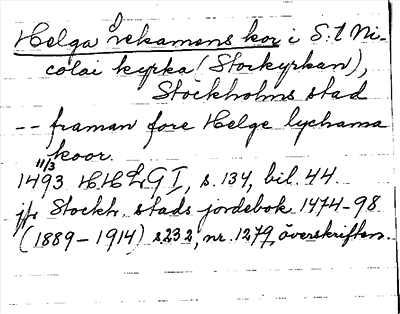 Helga lekamens kor i S:t Ni-
colai kyrka (Storkyrkan),
Stockholms stad
-- framan fore Helge lychama
koor.
11/3
1493 HHLG I, s. 134, bil. 44.
jfr Stockh. stads jordebok 1474-98
(1889-1914) s 232, nr. 1279, överskriften.